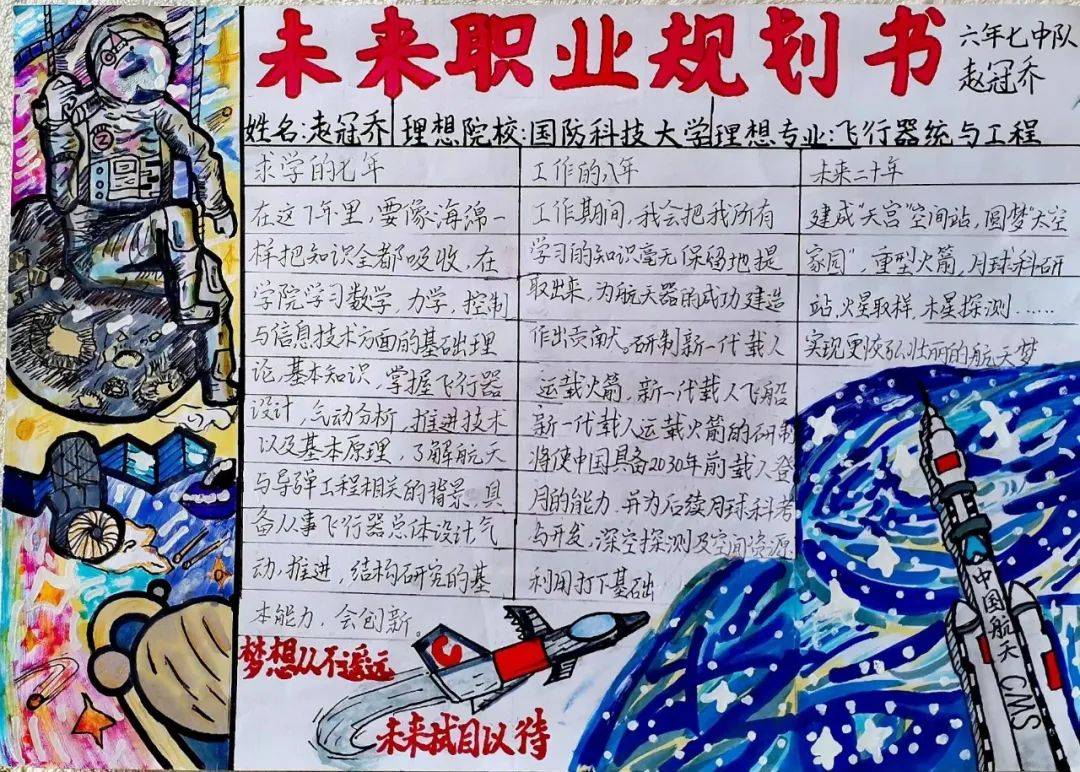 未来职业规划书
六年七中队
赵冠乔
姓名:赵冠乔 理想院校:国防科技大学 理想专业:飞行器统与工程
求学的七年
在这7年里,要像海绵一
样把知识全都吸收,在
学院学习数学,力学,控制
与信息技术方面的基础理
论,基本知识,掌握飞行器
设计,气动分析,推进技术
以及基本原理,了解航天
与导弹工程相关的背景,具
备从事飞行器总体设计气
动,推进,结构研究的基
本能力,会创新。
工作的八年
工作期间,我会把我所有
学习的知识毫无保留地提
取出来,为航天器的成功建造
作出贡献。研制新一代载人
运载火箭,新一代载人飞船
新一代载人运载火箭的研制
将使中国具备2030年前载人登
月的能力,并为后续月球科考
与开发,深空探测及空间资源
利用打下基础
未来二十年
建成"天宫"空间站,圆梦"太空
家园",重型火箭,月球科研
站,火星取样,木星探测……
实现更恢弘壮丽的航天梦
梦想从不遥远
未来拭目以待
中国航天
CMS